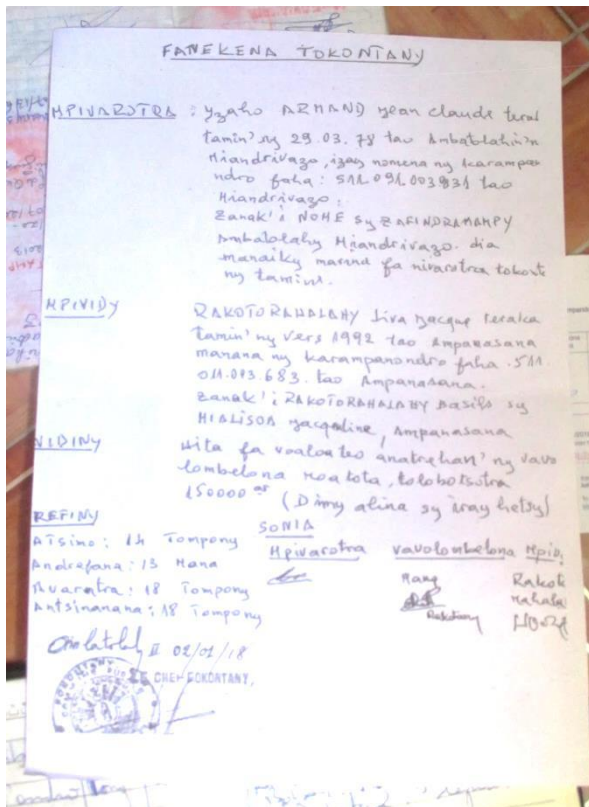 FANEKENA TOKONTANY
MPIVAROTRA : Yzaho ARMAND Jean Claude teral
tamin'ny 29.03.78 tao Ambatolahin
Miandrivazo, izay nomena ny karampano
ndro faha: 511.091.003931 tao
Miandrivazo.
Zanak'i NOHE sy ZAFINDRAMAMPY
Ambatolahy Miandrivazo. dia
manaiky marina fa nivarotra tokont
ny tamini.
MPIVIDY RAKOTORAHALAHY Liva Jacque teraka
tamin'ny vers 1992 tao Ampanasana
manana ny karampanondro faha. 511.
011.013.683. tao Ampanasana.
Zanak'i RAKOTORAHALAHY Basile sy
Jacqueline, Ampanasana
VIDINY Vita fa voaloa teo anatrehan'ny vavo
lombelona roa tota,
150000 ar (Dimy alina sy iray hetsy)
REFINY
Atsimo: 14 Tompony
Andrefana: 13 Mana
Avaratra: 18 Tompony
Antsinanana: 18 Tompony
SONIA
Mpivarotra Vavolombelona Mpiv
Rakoto
Rakotoany
II 02/01/18
LE CHEF FOKONTANY,